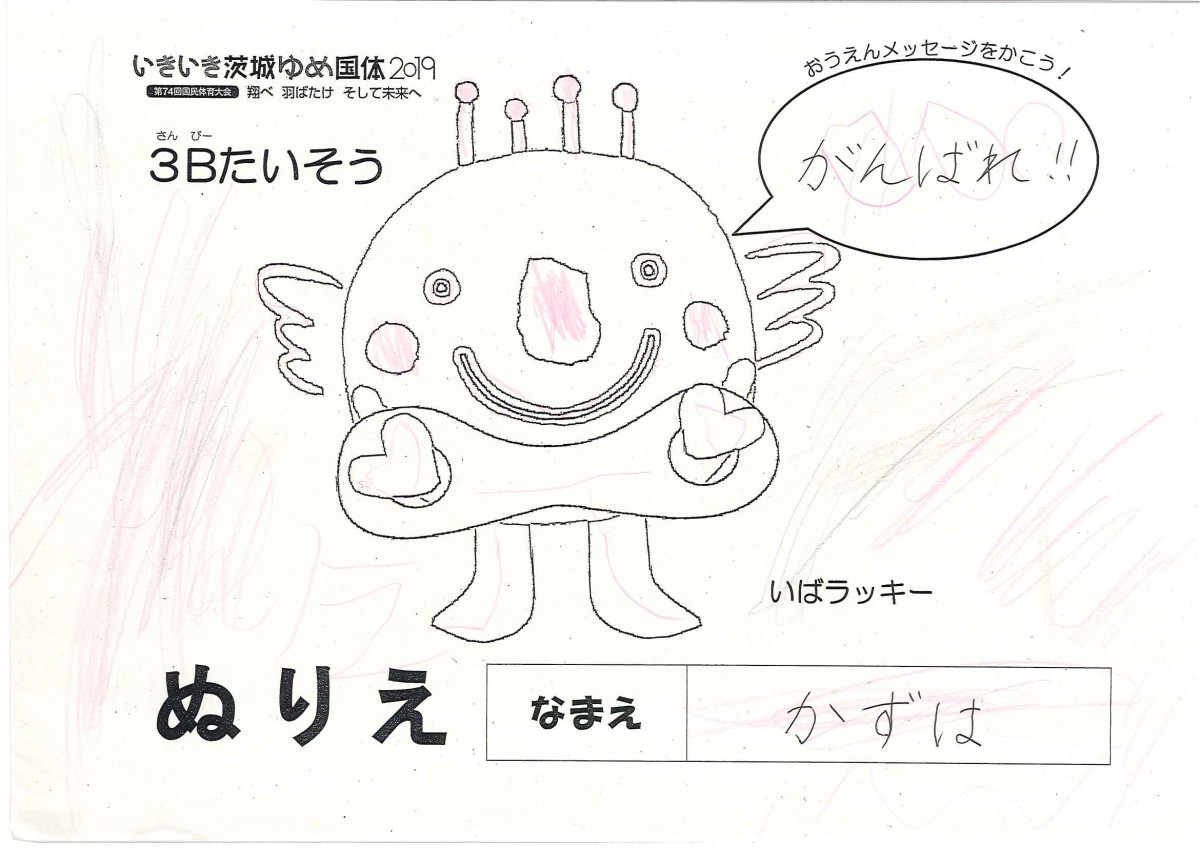 いきいき茨城ゆめ国体2019
第74回国民体育大会 翔べ 羽ばたけ そして未来へ
さん びー
3Bたいそう
おうえんメッセージをかこう！
がんばれ!!
いばラッキー
ぬりえ
なまえ かずは